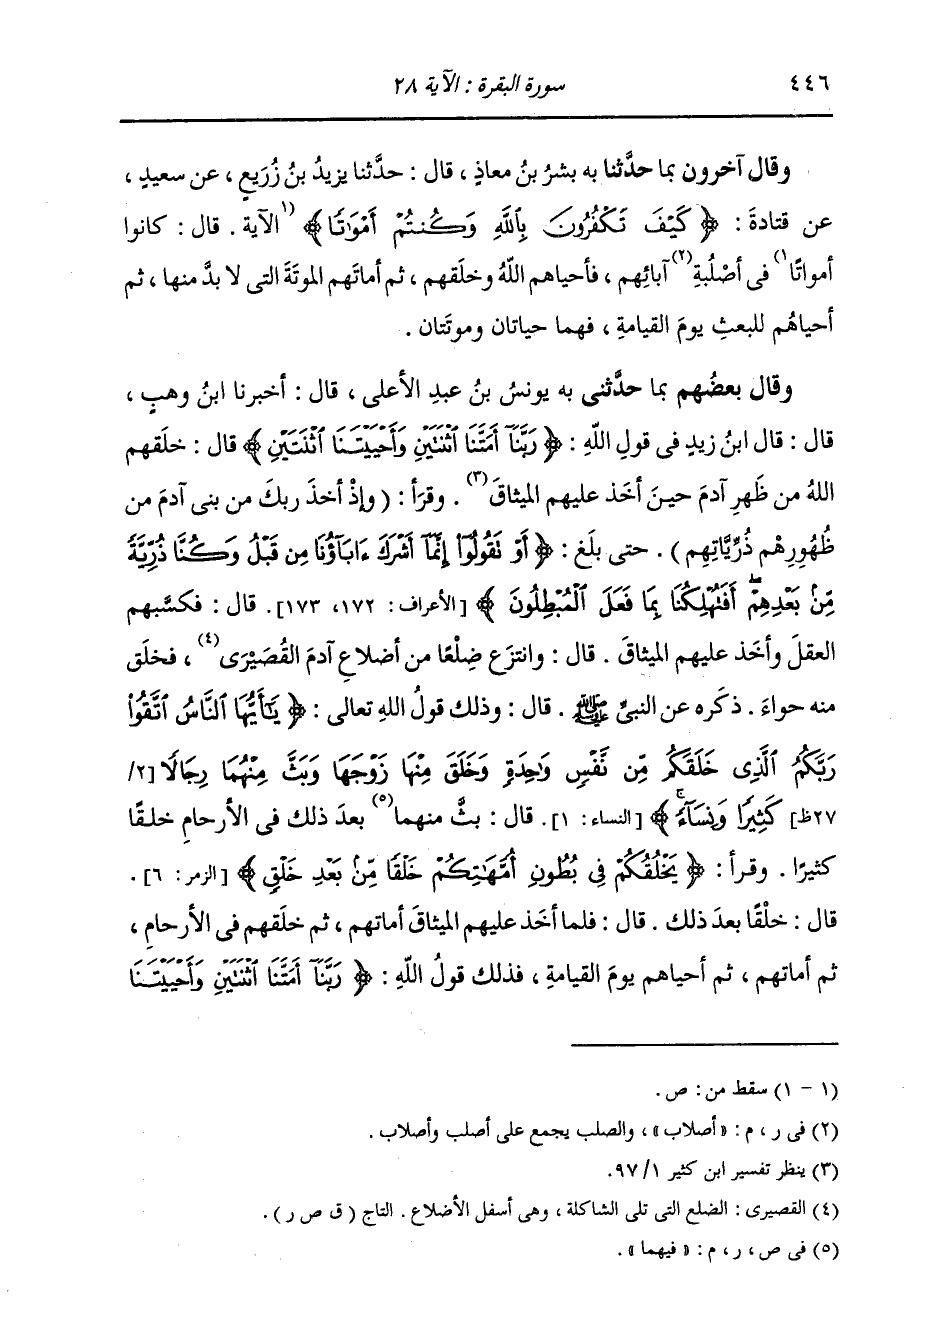 ٤٤٦ سورة البقرة : الآية ٢٨
وقال آخرون بما حدَّثنا به بشرُ بنُ معاذٍ ، قال : حدَّثنا يزيدُ بنُ زُرَيعٍ ، عن سعيدٍ ،
عن قتادةَ : ﴿ كَيْفَ تَكْفُرُونَ بِٱللَّهِ وَكُنتُمْ أَمْوَٰتًا ﴾ (١ الآية . قال : كانوا
أمواتًا ١) فى أصْلُبةِ (٢) آبائِهم ، فأحياهم اللَّهُ وخلَقهم ، ثم أماتَهم الموتَةَ التى لا بدَّ منها ، ثم
أحياهُم للبعثِ يومَ القيامةِ ، فهما حياتان وموتَتان .
وقال بعضُهم بما حدَّثنى به يونسُ بنُ عبدِ الأعلى ، قال : أخبرنا ابنُ وهبٍ ،
قال : قال ابنُ زيدٍ فى قولِ اللَّهِ : ﴿ رَبَّنَآ أَمَتَّنَا ٱثْنَتَيْنِ وَأَحْيَيْتَنَا ٱثْنَتَيْنِ ﴾ قال : خلَقهم
اللهُ من ظَهرِ آدمَ حينَ أخَذ عليهم الميثاقَ (٣) . وقرَأ : ( وإذْ أخذَ ربكَ من بنى آدمَ من
ظُهورِهْم ذُرِّيَّاتِهِم ) . حتى بلَغ : ﴿ أَوْ نَقُولُوٓا۟ إِنَّمَآ أَشْرَكَ ءَابَآؤُنَا مِن قَبْلُ وَكُنَّا ذُرِّيَّةً
مِّنۢ بَعْدِهِمْ أَفَتُهْلِكُنَا بِمَا فَعَلَ ٱلْمُبْطِلُونَ ﴾ [الأعراف : ١٧٢، ١٧٣]. قال : فكسَّبهم
العقلَ وأخَذ عليهم الميثاقَ . قال : وانتزَع ضِلْعًا من أضلاعِ آدمَ القُصَيْرَى (٤) ، فخلَق
منه حواءَ . ذكَره عن النبيِّ ﷺ . قال : وذلك قولُ اللهِ تعالى : ﴿ يَٰٓأَيُّهَا ٱلنَّاسُ ٱتَّقُوا۟
رَبَّكُمُ ٱلَّذِى خَلَقَكُم مِّن نَّفْسٍ وَٰحِدَةٍ وَخَلَقَ مِنْهَا زَوْجَهَا وَبَثَّ مِنْهُمَا رِجَالًا [٢/
٢٧ظ] كَثِيرًا وَنِسَآءً ﴾ [النساء : ١]. قال : بثَّ منهما (٥) بعدَ ذلك فى الأرحامِ خلقًا
كثيرًا . وقرأ : ﴿ يَخْلُقُكُمْ فِى بُطُونِ أُمَّهَٰتِكُمْ خَلْقًا مِّنۢ بَعْدِ خَلْقٍ ﴾ [الزمر : ٦] .
قال : خلْقًا بعدَ ذلك . قال : فلما أخَذ عليهم الميثاقَ أماتهم ، ثم خلَقهم فى الأرحامِ ،
ثم أماتهم ، ثم أحياهم يومَ القيامةِ ، فذلك قولُ اللَّهِ : ﴿ رَبَّنَآ أَمَتَّنَا ٱثْنَتَيْنِ وَأَحْيَيْتَنَا
(١ - ١) سقط من : ص .
(٢) فى ر ، م : « أصلاب » ، والصلب يجمع على أصلب وأصلاب .
(٣) ينظر تفسير ابن كثير ١/ ٩٧.
(٤) القصيرى : الضلع التى تلى الشاكلة ، وهى أسفل الأضلاع . التاج ( ق ص ر ) .
(٥) فى ص ، ر ، م : « فيهما » .